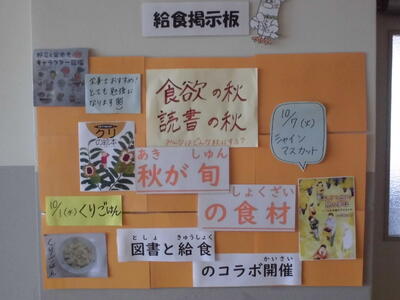 給食掲示板
栄養士おすすめ!
とても勉強に
なります
食欲の秋
読書の秋
10/7(火)
シャイン
マスカット
クリ
の絵本
あき しゅん
秋が旬
しょくざい
の食材
10/1(水)くりごはん
くりごはん
としょ きゅうしょく
図書と給食
かいさい
のコラボ開催